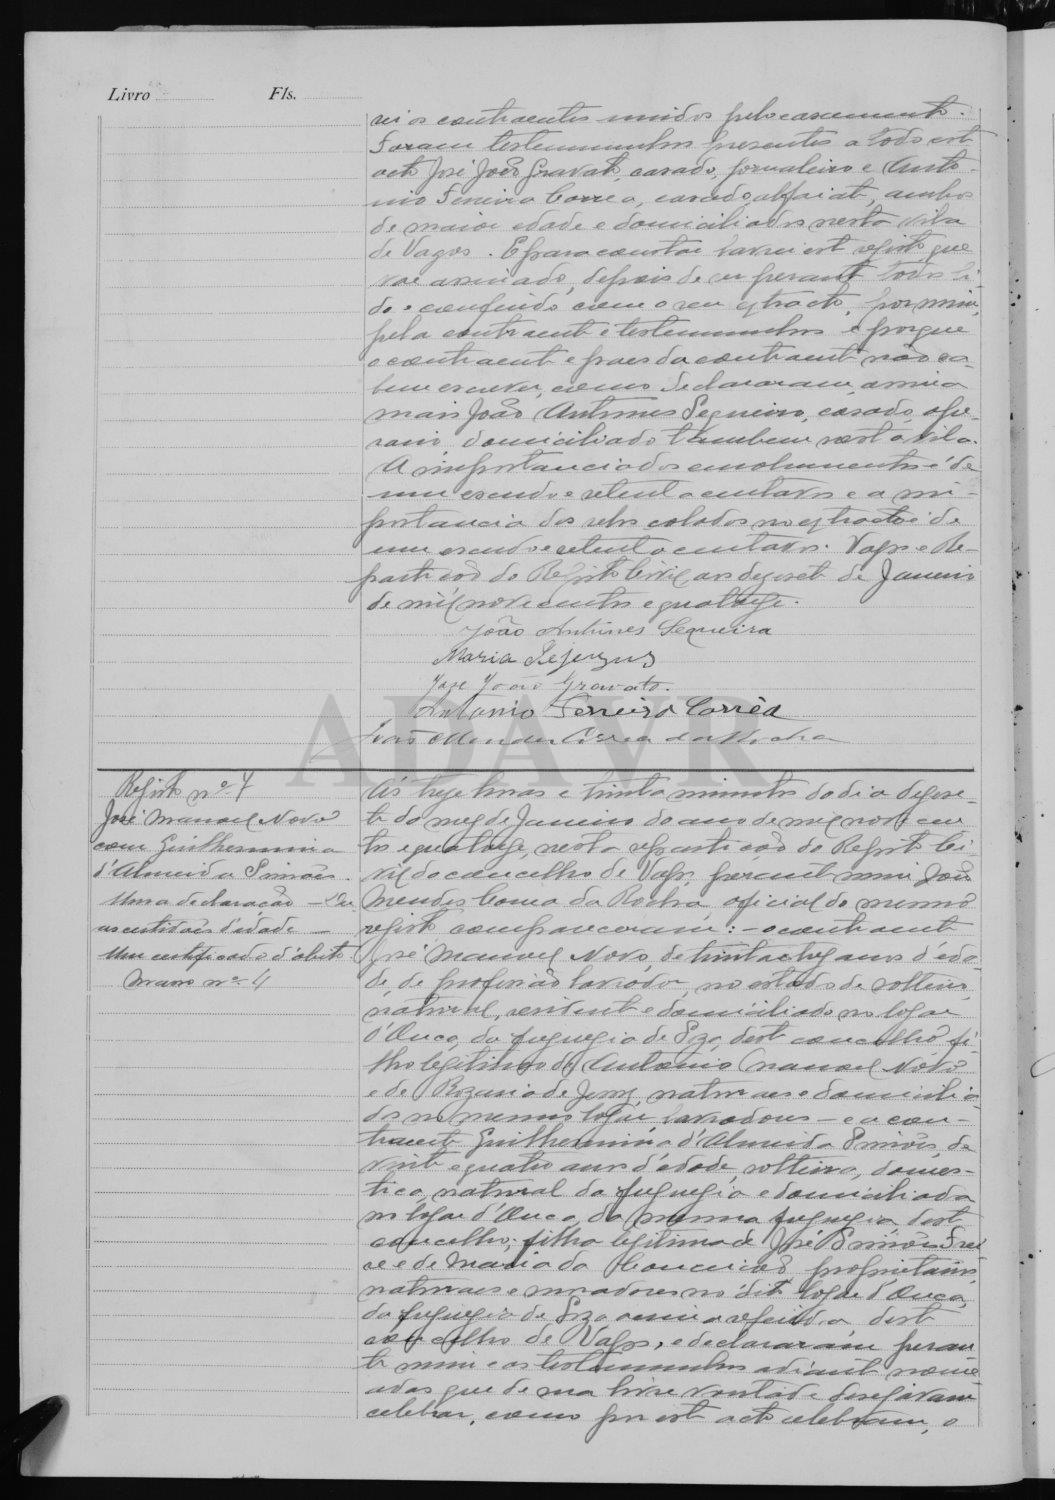 Livro Fls.
rei os contraentes unidos pelo casamento.
Foram testemunhas presentes a todo este
acto José João Gravato, casado, jornaleiro e Anto-
nio Ferreira Corrêa, casado, alfaiate, ambos
de maior edade e domiciliados nesta vila
de Vagos. E para constar lavrei este registo que
vae assinado, depois de ser perante todos li-
do e conferido com o seu extracto, por mim,
pela contraente e testemunhas e porque
o contraente e paes da contraente não sa-
bem escrever, como declararam, assina
mais João Antunes Sequeira, casado, ope-
rario, domiciliado tambem nesta vila.
A importancia dos emolumentos é de
um escudo e setenta centavos e a im-
portancia dos selos colados no extracto é de
um escudo e setenta centavos. Vagos e Re-
partição do Registo Civil aos dezesete de Janeiro
de mil novecentos e quatorze.
João Antunes Sequeira
Maria
José João Gravato.
Antonio Ferreira Corrêa
João Mendes Corrêa da Rocha
ADAVR
Registo nº 7
José Manoel Novo
com Guilhermina
d'Almeida Simões.
Uma declaração — Du-
as certidões d'idade —
Um certificado d'obito
Maço nº 4
Ás treze horas e trinta minutos do dia dezese-
te do mez de Janeiro do ano de mil novecen-
tos e quatorze, nesta repartição do Registo Ci-
vil do concelho de Vagos, perante mim João
Mendes Corrêa da Rocha, oficial do mesmo
registo compareceram: — o contraente
José Manoel Novo, de trinta e tres anos d'eda-
de, de profissão lavrador, no estado de solteiro,
natural, residente e domiciliado no logar
d'Ouca, da freguezia de Soza, deste concelho, fi-
lho legitimo de Antonio Manoel Novo
e de Rozaria de Jesus, naturaes e domicilia-
dos no mesmo logar, lavradores — e a con-
traente Guilhermina d'Almeida Simões, de
vinte e quatro anos d'edade, solteira, domes-
tica, natural da freguezia e domiciliada
no logar d'Ouca, da mesma freguezia, deste
concelho; filha legitima de José Simões Frei-
re e de Maria da Conceição, proprietarios,
naturaes e moradores no dito logar d'Ouca,
da freguezia de Soza acima referida deste
concelho de Vagos, e declararam peran-
te mim e as testemunhas adiante nome-
adas que de sua livre vontade desejavam
celebrar, como por este acto celebram, o